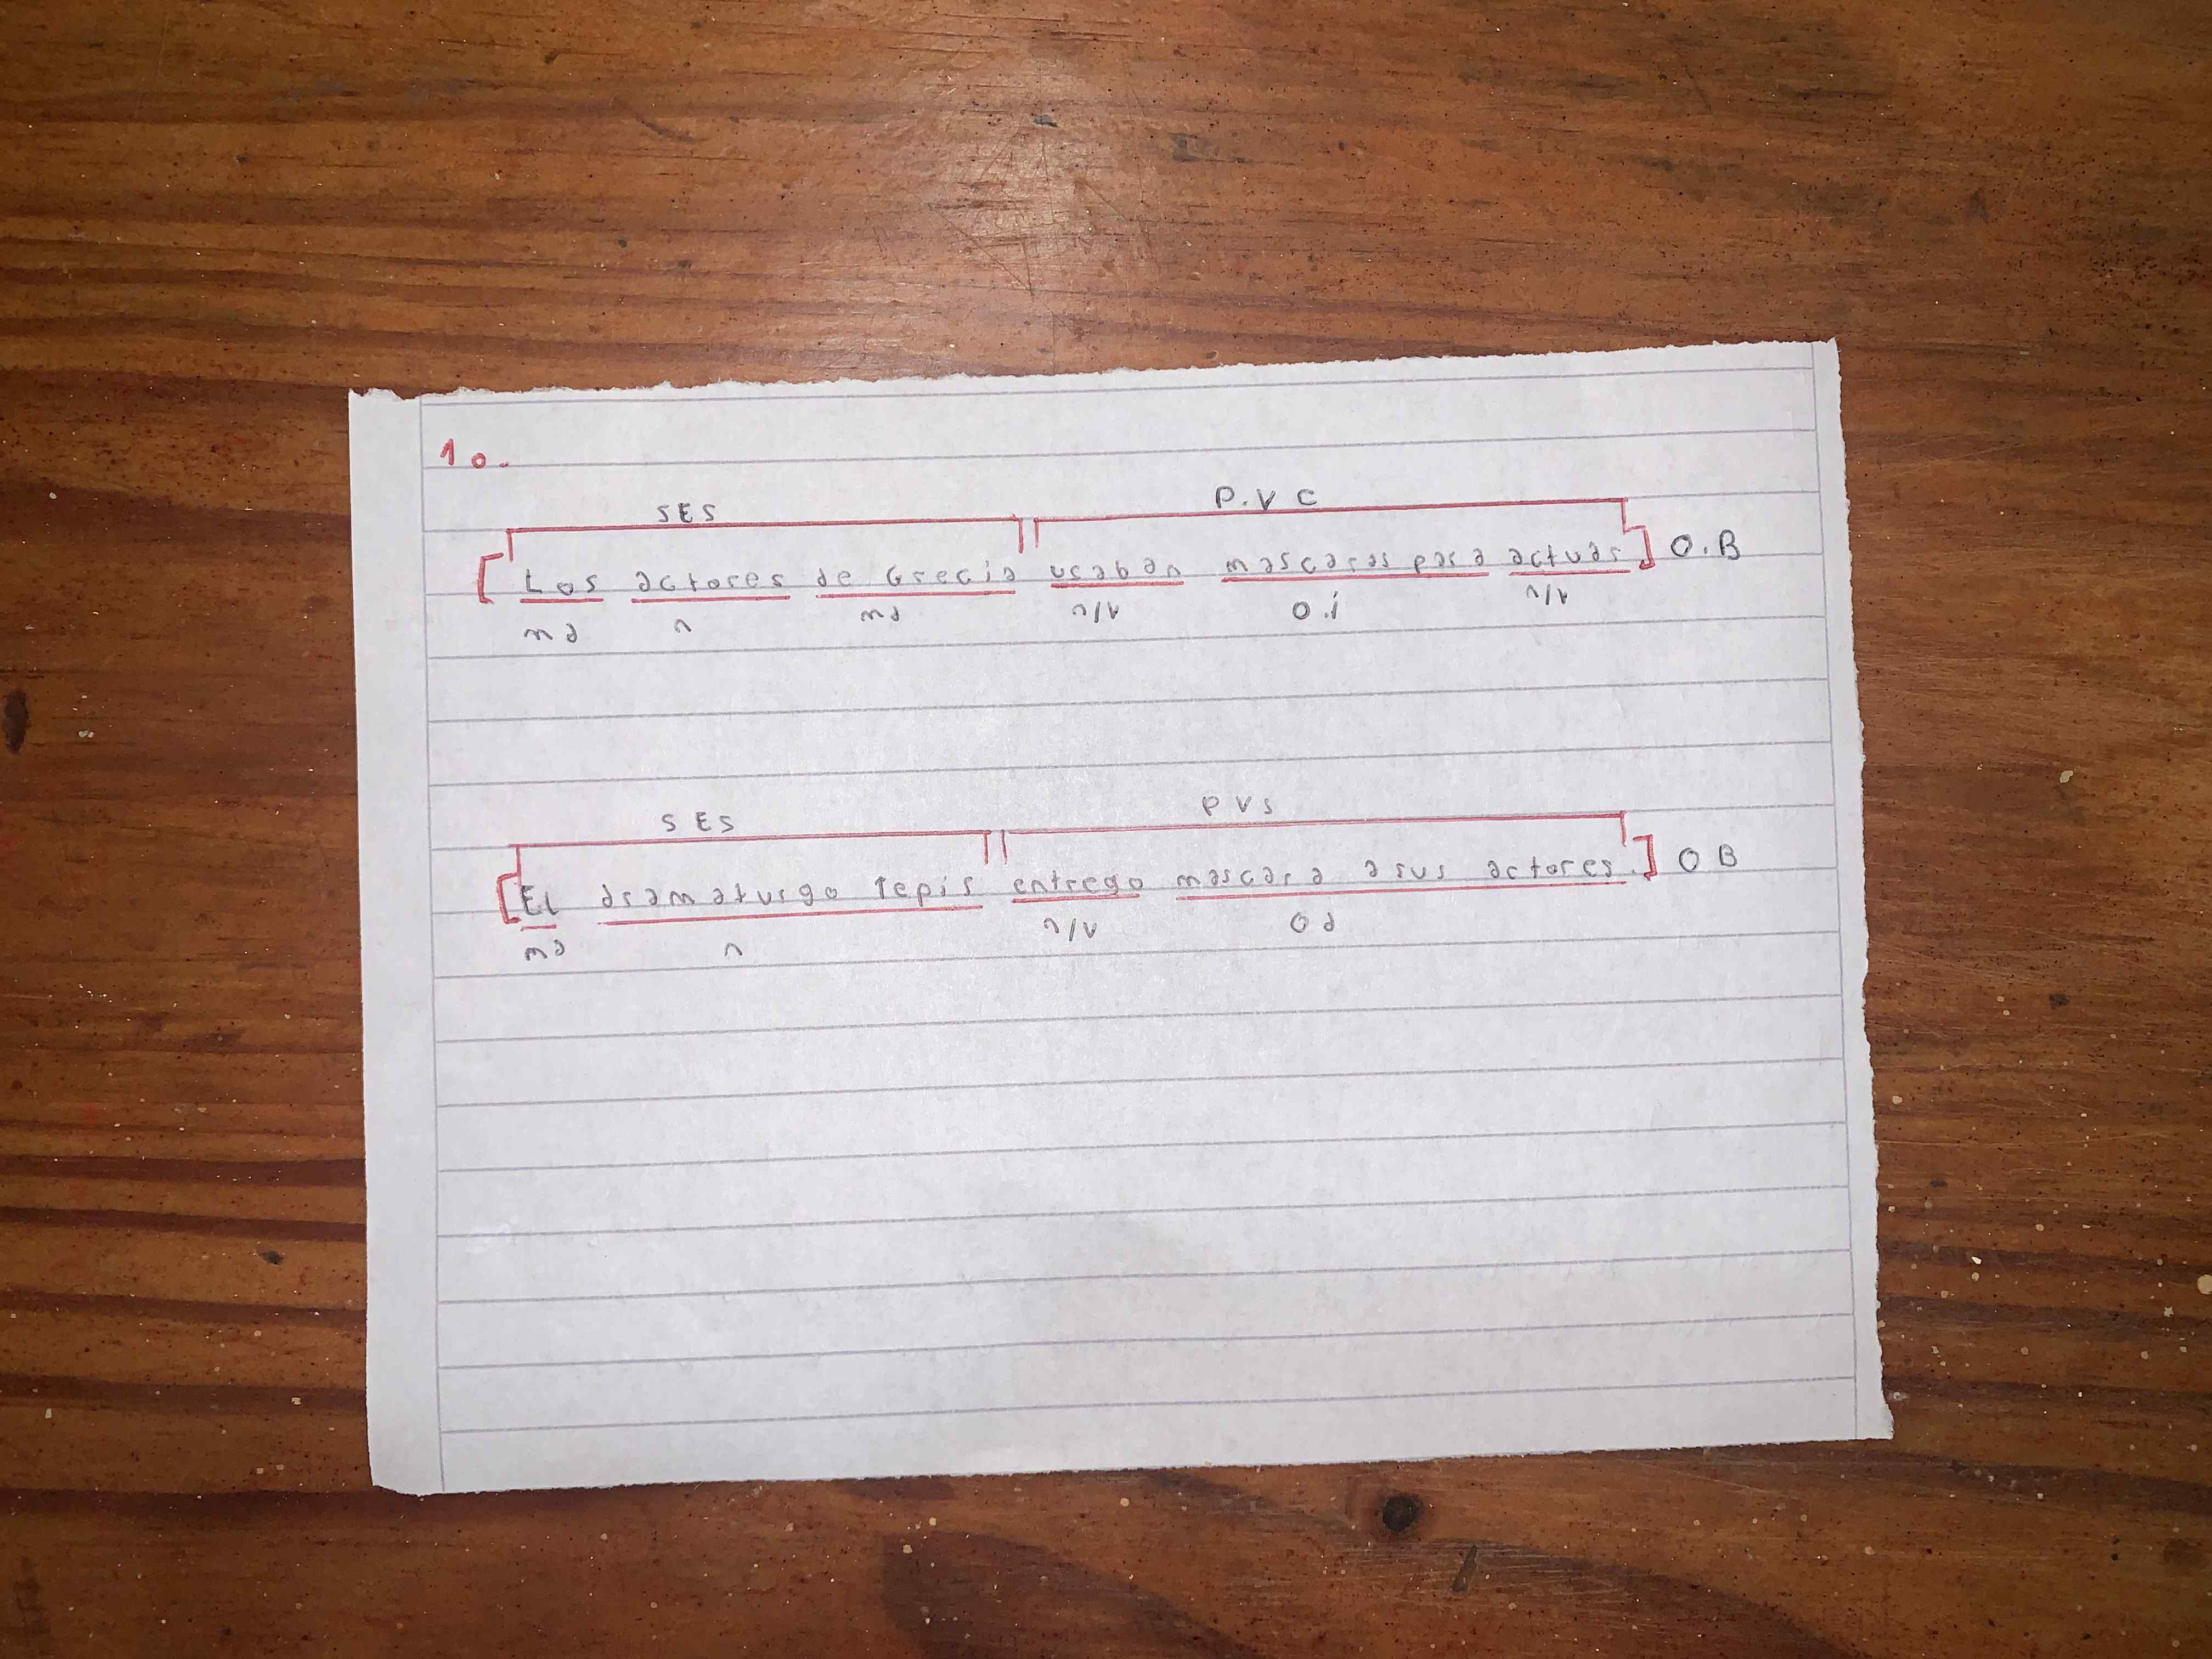 10.
SES P.V C
[Los actores de Grecia usaban mascaras para actuar] O.B
md n md n/v o.i n/v
SES PVS
[El dramaturgo tepis entrego mascara a sus actores.] O B
md n n/v Od